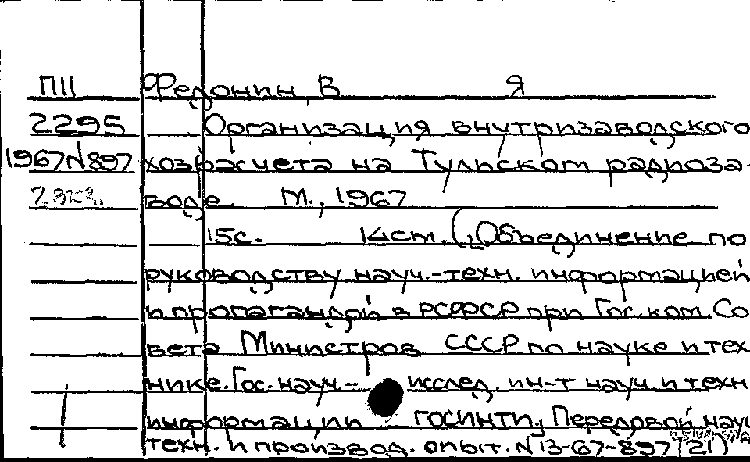 П11 Федонин, В Я
2295 Организация внутризаводского
1967 N897 хозрасчета на Тульском радиоза-
2 экз. воде. М., 1967
15с. 14см. (Объединение по
руководству науч.-техн. информацией
и пропагандой в РСФСР при Гос. ком. Со
вета Министров СССР по науке и тех
нике. Гос. науч.- исслед. ин-т науч. и техн
информации ГОСИНТИ, Передовой науч
техн. и производ. опыт. N 13-67-897/21)